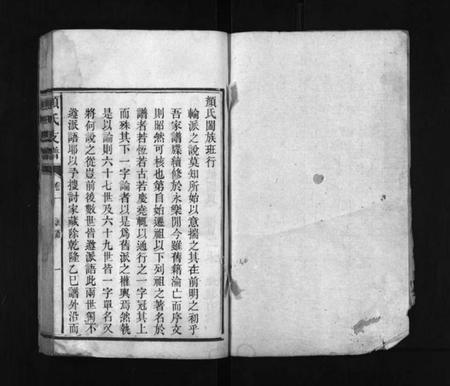 顏氏闔族班行
輸派之說莫知所始以意揣之其在前明之初乎
吾家譜牒續修於永樂間今雖舊籍淪亡而序文
則昭然可核也第自始遷祖以下列祖之著名於
譜者若恆若古若慶堯輒以通行之一字冠其上
而殊其下一字論者以是為舊派之權輿焉然執
是以論則六十七世及六十九世皆一字單名又
將何說之從豈前後數世皆遵派語此兩世獨不
遵派語耶以予搜討家藏除乾隆乙巳譜外沿而
顏氏支譜
卷一
一